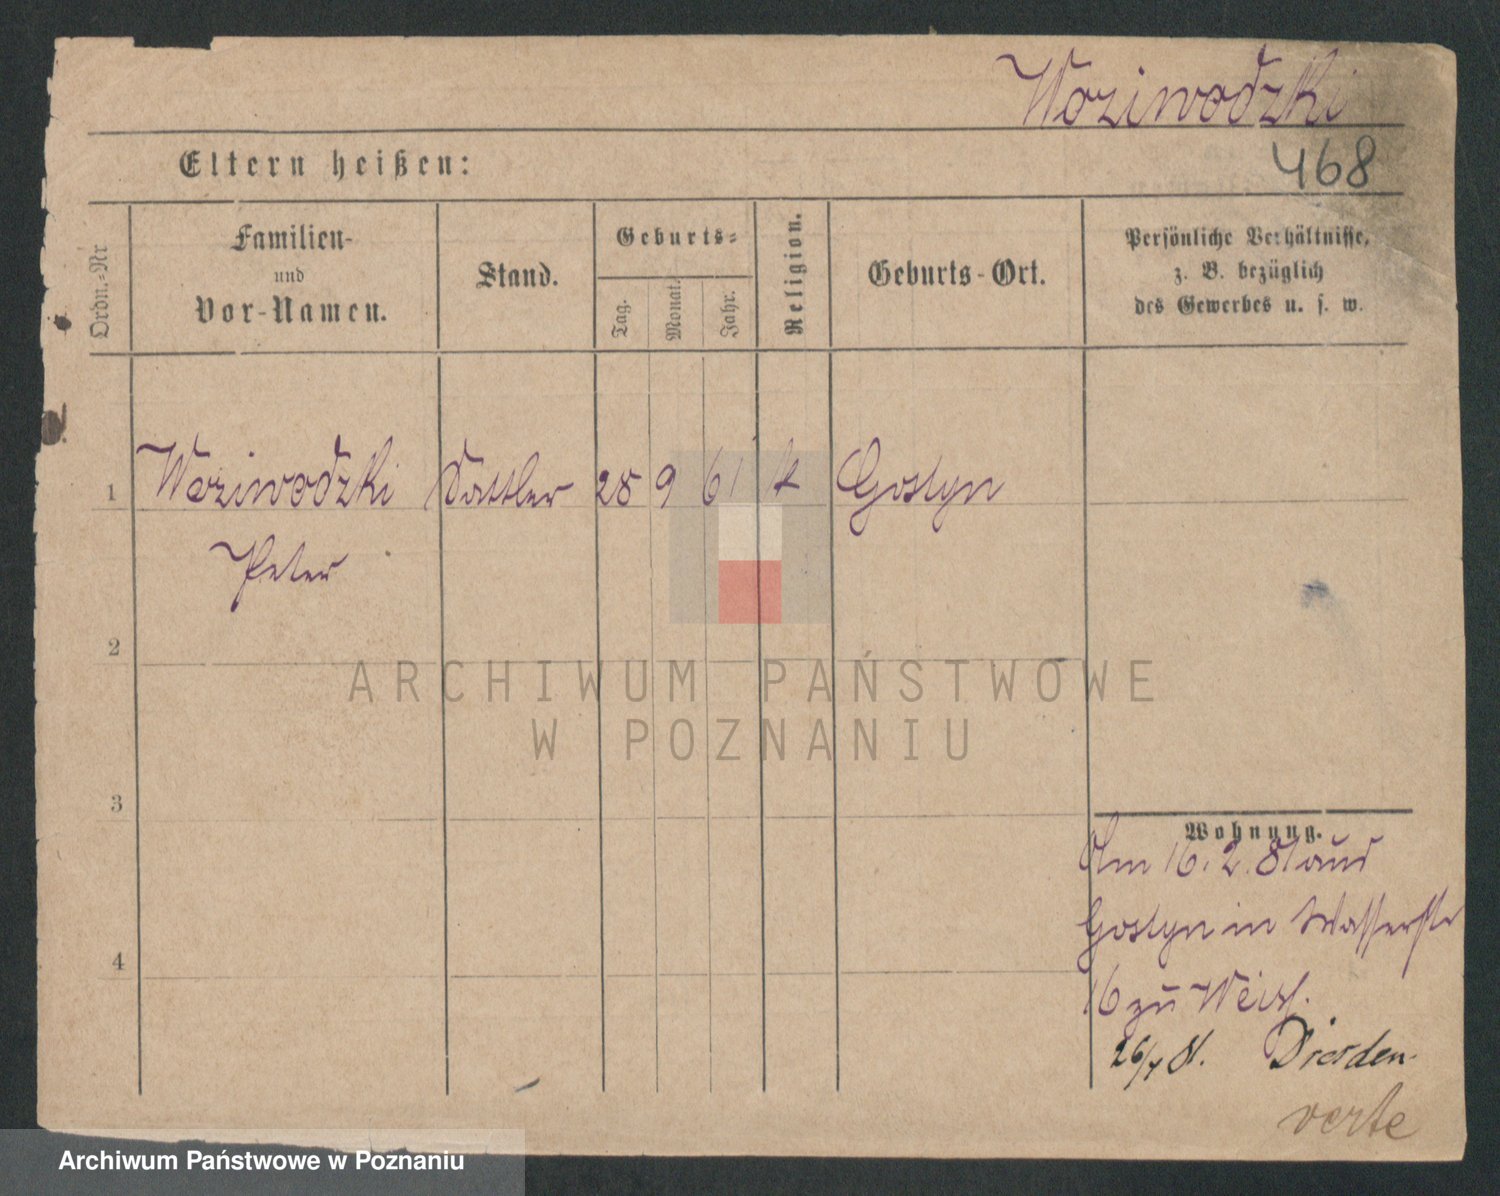 Woziwodzki
468
Eltern heißen:
Ordn.-Nr
Familien-
und
Vor-Namen.
Stand.
Geburts-
Tag.
Monat.
Jahr.
Religion.
Geburts-Ort.
Persönliche Verhältnisse,
z. B. bezüglich
des Gewerbes u. s. w.
1
Woziwodzki Sattler 28 9 61 k Gostyn
Peter
2
ARCHIWUM PAŃSTWOWE
W POZNANIU
3
Wohnung.
Am 16.2.81 aus
Gostyn in Wasserstr
16 zu
4
81. Dresden
verte
Archiwum Państwowe w Poznaniu